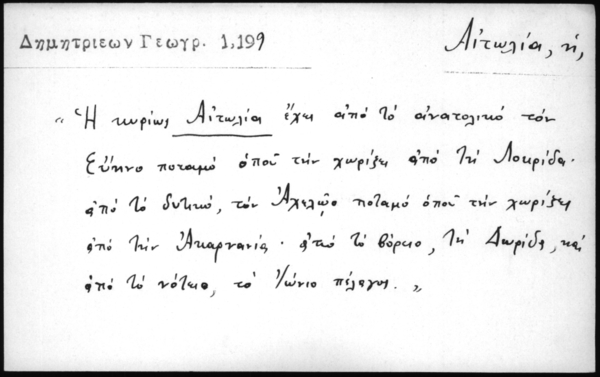 Δημητριεων Γεωγρ. 1,199
Αἰτωλία, ἡ,
„ Ἡ κυρίως Αἰτωλία ἔχει ἀπό τό ἀνατολικό τόν
Εὔηνο ποταμό ὁποῦ τήν χωρίζει ἀπό τή Λοκρίδα·
ἀπό τό δυτικό, τόν Ἀχελῶο ποταμό ὁποῦ τήν χωρίζει
ἀπό τήν Ἀκαρνανία· ἀπό τό βόρειο, τή Δωρίδα, καί
ἀπό τό νότειο, τό Ἰώνιο πέλαγος. „